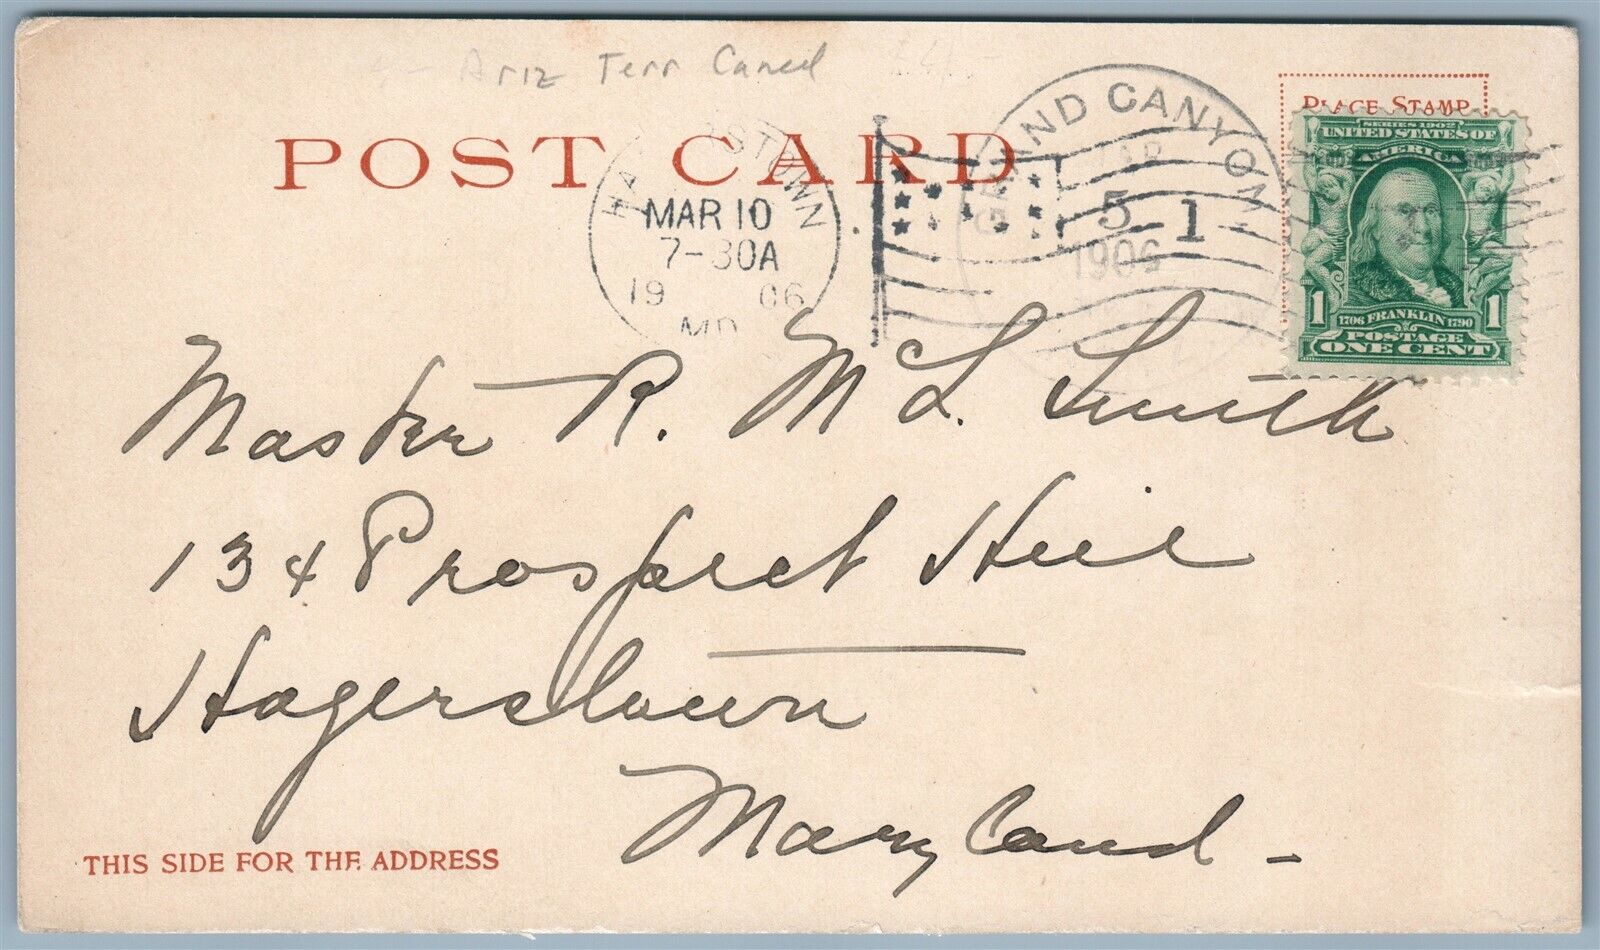 Ariz Terr Cancel
PLACE STAMP
POST CARD
HAGERSTOWN
MAR 10
7-30A
19 06
MD.
GRAND CANYON
5
1906
1
SERIES 1902
UNITED STATES OF
AMERICA
1 1
1706 FRANKLIN 1790
POSTAGE
ONE CENT
Master R. McL. Smith
134 Prospect Hill
Hagerstown
Maryland -
THIS SIDE FOR THE ADDRESS